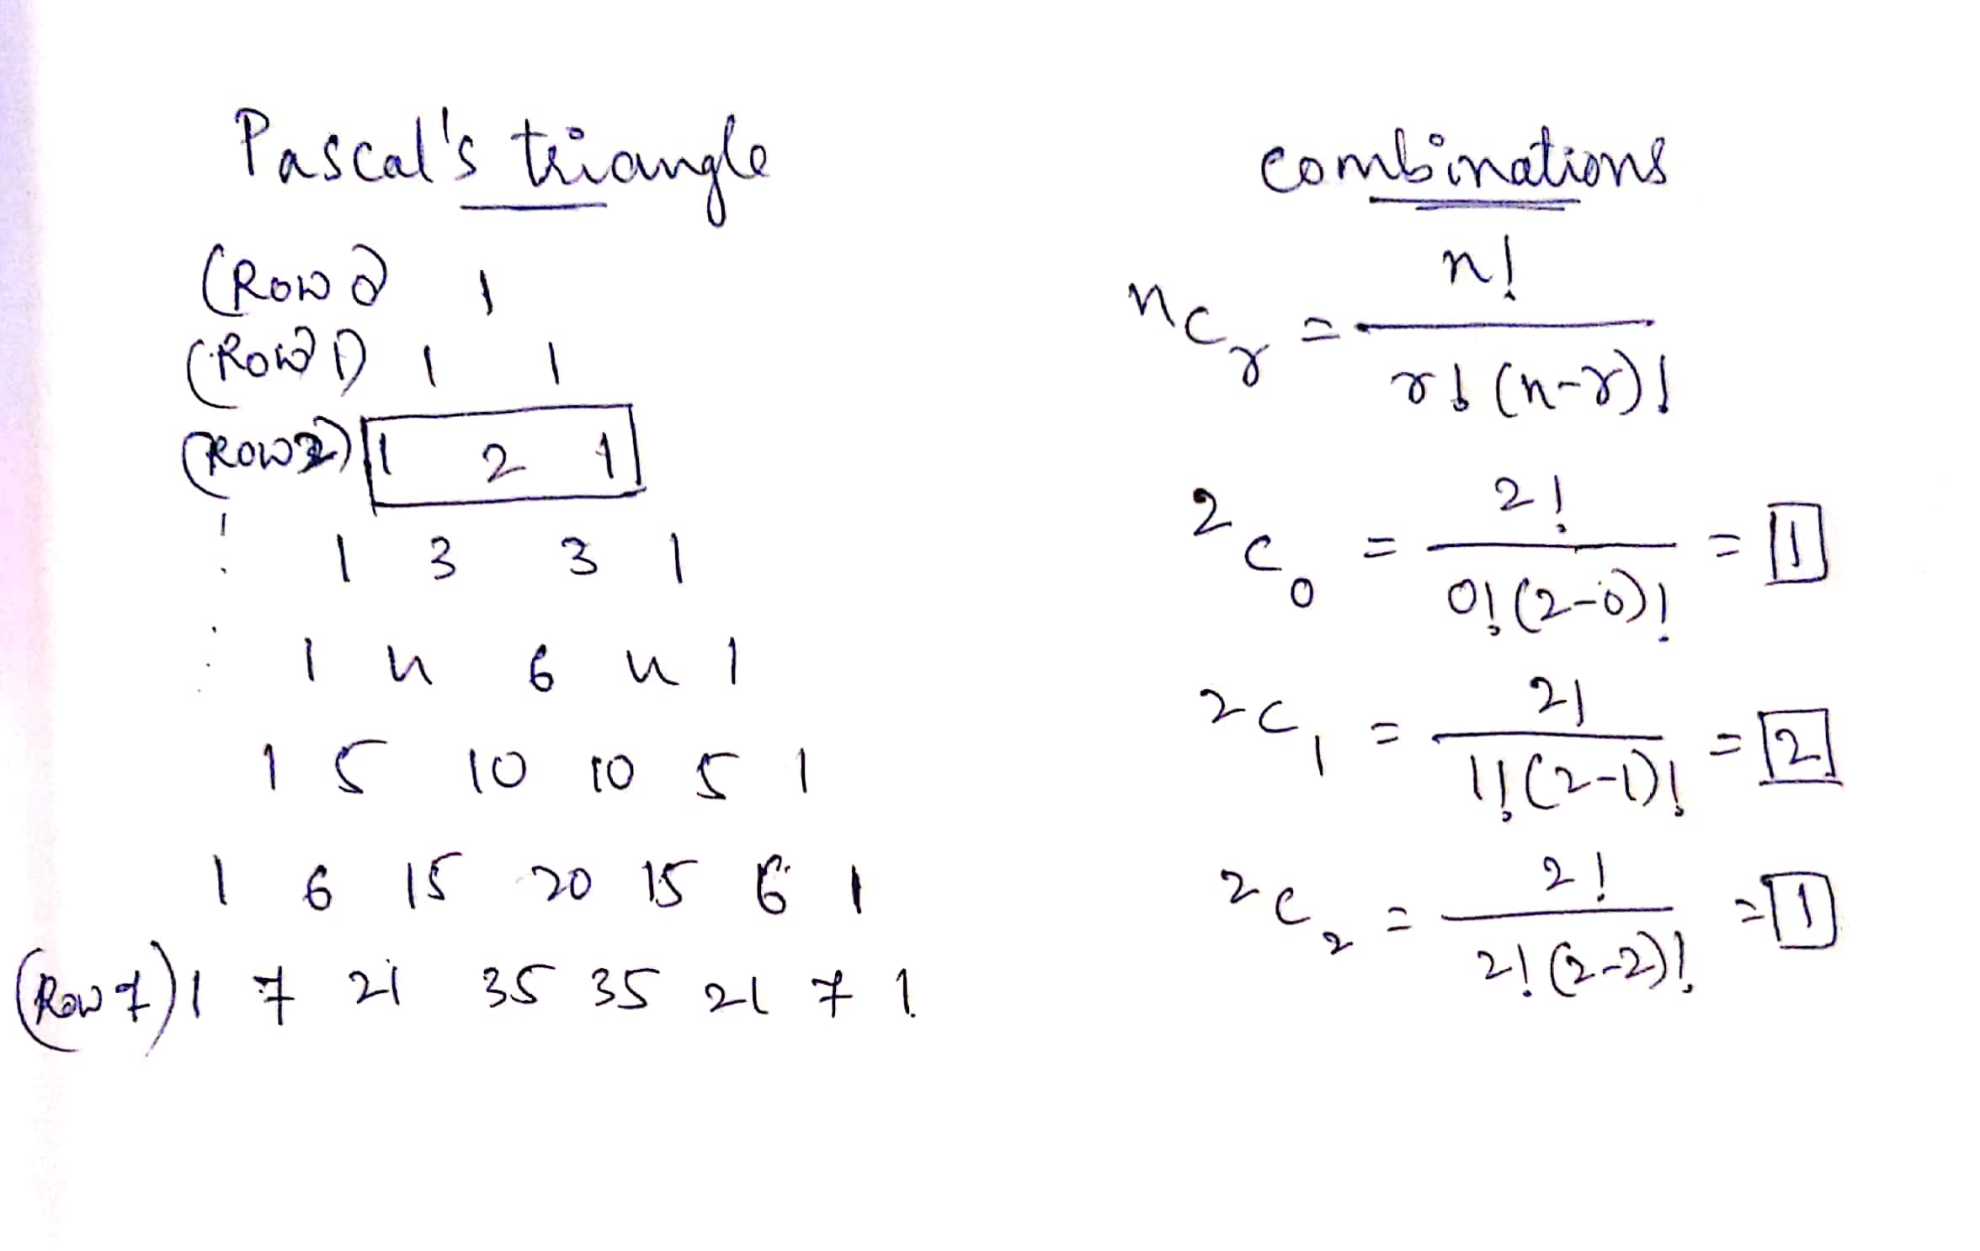 Pascal's triangle
(Row 0) 1
(Row 1) 1 1
(Row 2) 1 2 1
1 3 3 1
1 4 6 4 1
1 5 10 10 5 1
1 6 15 20 15 6 1
(Row 7) 1 7 21 35 35 21 7 1
combinations
nCr = n! / r! (n-r)!
2C0 = 2! / 0! (2-0)! = 1
2C1 = 2! / 1! (2-1)! = 2
2C2 = 2! / 2! (2-2)! = 1